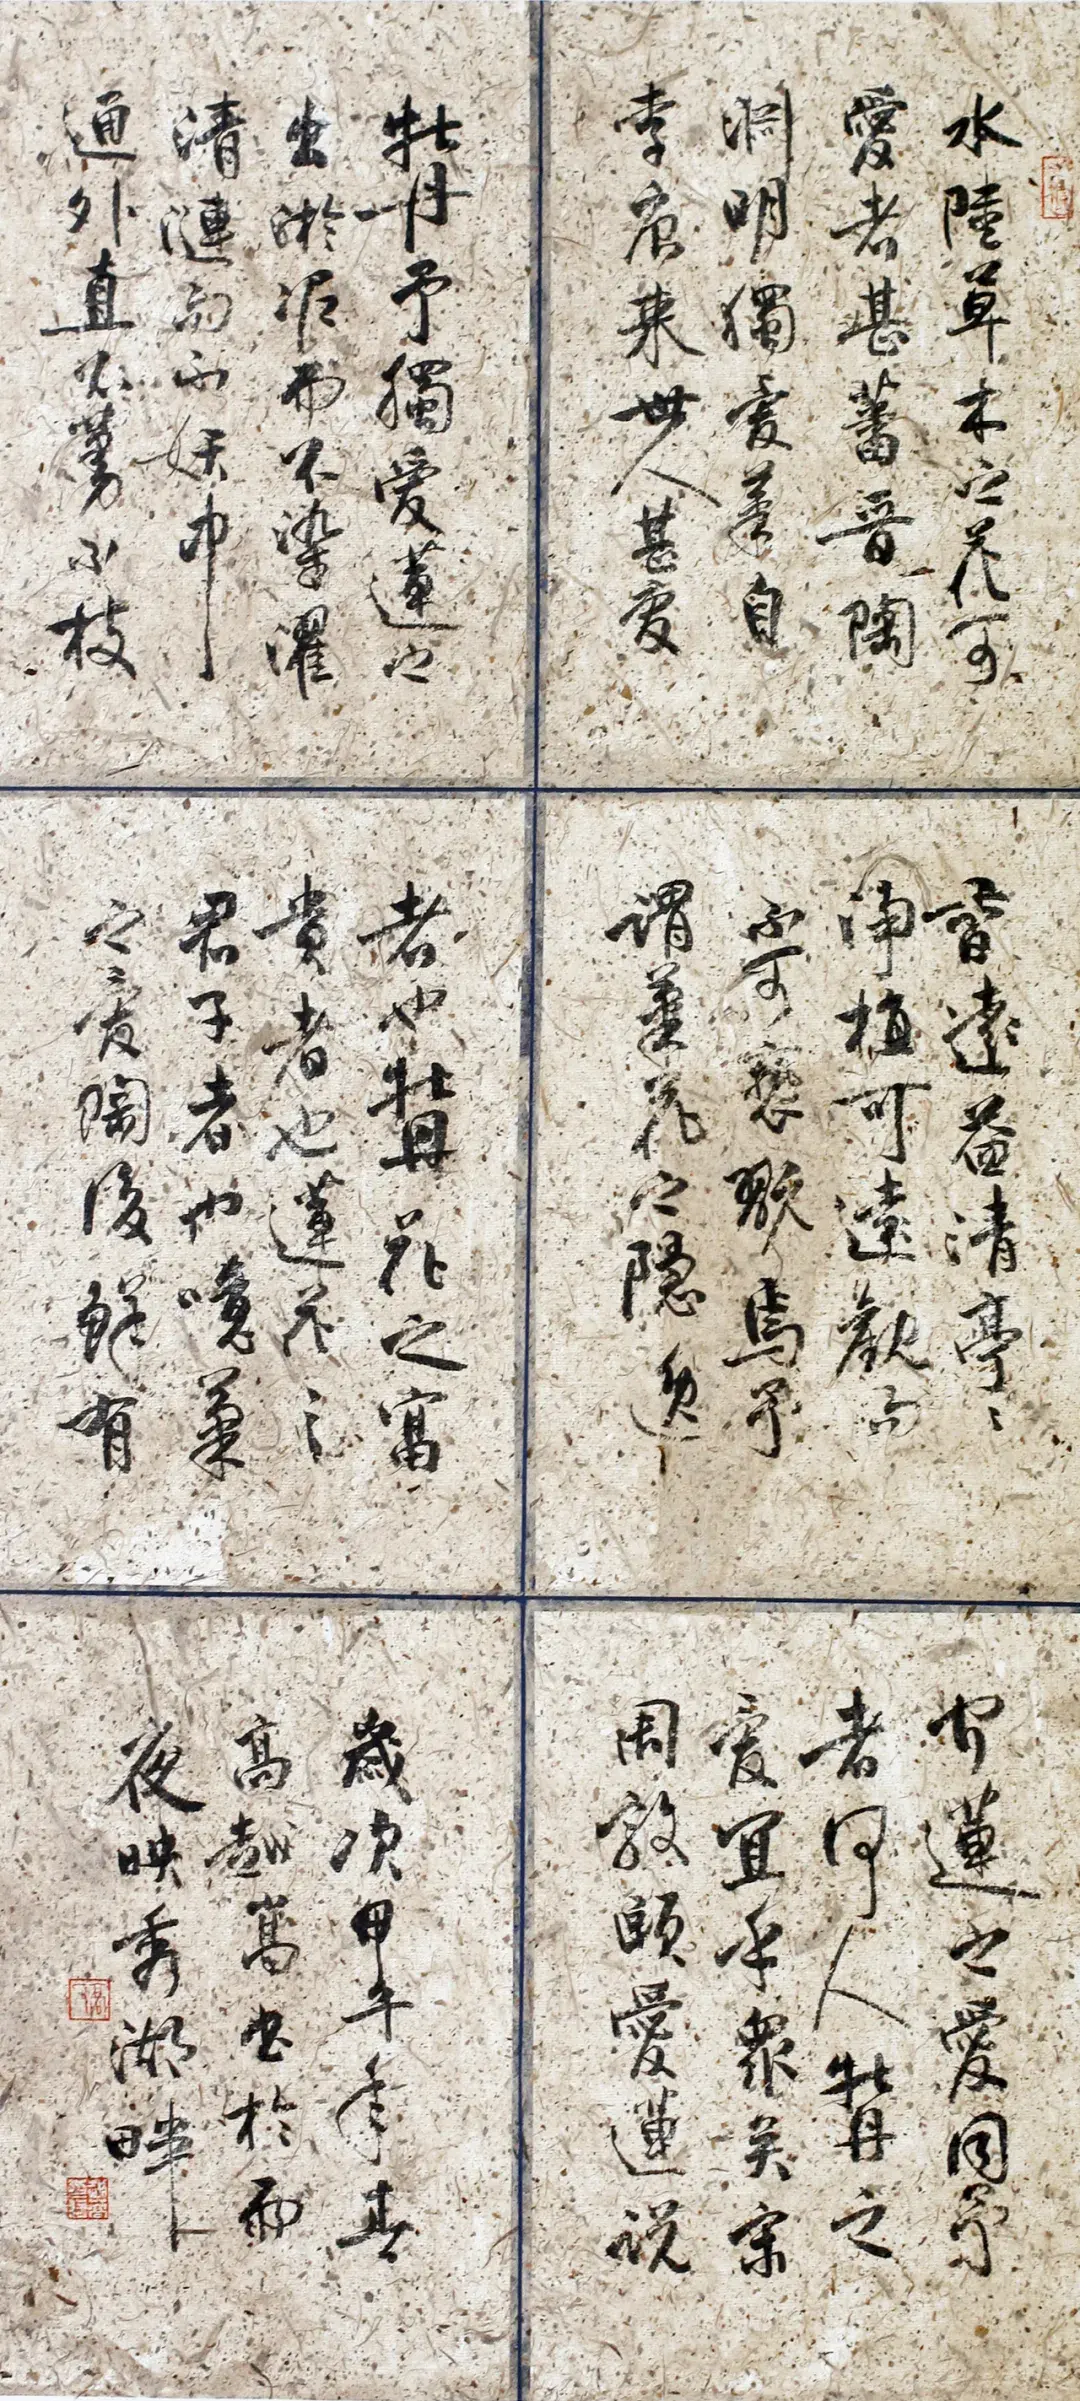 水陸草木之花可
愛者甚蕃晋陶
淵明獨愛菊自
李唐来世人甚愛
牡丹予獨愛蓮之
出淤泥而不染濯
清漣而不妖中
通外直不蔓不枝
香遠益清亭〻
淨植可遠觀而
不可褻翫焉予
謂菊花之隱逸
者也牡丹花之富
貴者也蓮花之
君子者也噫菊
之愛陶後鮮有
聞蓮之愛同予
者何人牡丹之
愛宜乎眾矣宋
周敦頤愛蓮説
歲次甲午年春
高越嵩書於雨
夜映秀湖畔